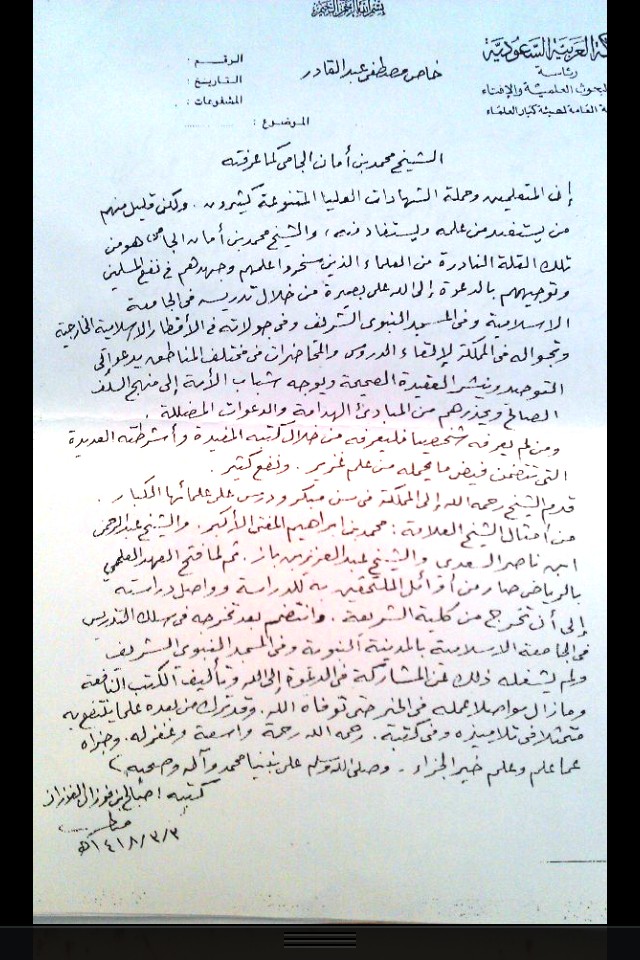 بسم الله الرحمن الرحيم
العربية السعودية
رئاسة
البحوث العلمية والإفتاء
العامة لهيئة كبار العلماء
خاص مصطفى عبد القادر
الرقم :
التاريخ :
المشفوعات :
الموضوع :
الشيخ محمد بن أمان الجامي كما عرفته
إن المتعلمين وحملة الشهادات العليا المتنوعة كثيرون . ولكن قليل منهم
من يستفيد من علمه ويستفاد منه ، والشيخ محمد بن أمان الجامي هو من
تلك القلة النادرة من العلماء الذين سخروا علمهم وجهدهم في نفع المسلمين
وتوجيههم بالدعوة إلى الله على بصيرة من خلال تدريسه في الجامعة
الاسلامية وفي المسجد النبوي الشريف وفي جولاته في الأقطار الاسلامية الخارجية
وتجواله في المملكة لإلقاء الدروس والمحاضرات في مختلف المناطق يدعو إلى
التوحيد وينشر العقيدة الصحيحة ويوجه شباب الأمة إلى منهج السلف
الصالح ويحذرهم من المبادئ الهدامة والدعوات المضللة .
ومن لم يعرفه شخصيا فليعرفه من خلال كتبه المفيدة وأشرطته العديدة
التي تتضمن فيض ما يحمله من علم غزير . ونفع كثير .
قدم الشيخ رحمه الله إلى المملكة في سن مبكر ودرس على علمائها الكبار .
من أمثال الشيخ العلامة : محمد بن ابراهيم المفتي الأكبر . والشيخ عبد الرحمن
ابن ناصر السعدي والشيخ عبد العزيز بن باز . ثم لما فتح المعهد العلمي
بالرياض صار من أوائل الملتحقين به للدراسة وواصل دراسته
إلى أن تخرج من كلية الشريعة . وانتضم بعد تخرجه في سلك التدريس
في الجامعة الاسلامية بالمدينة النبوية وفي المسجد النبوي الشريف
ولم يشغله ذلك عن المشاركة في الدعوة إلى الله وتأليف الكتب النافعة
وما زال مواصلا عمله في الخير حتى توفاه الله . وقد ترك من بعده علما ينتفع به
متمثلا في تلاميذه وفي كتبه . رحمه الله رحمة واسعة وغفر له . وجزاه
عما علم وعلم خير الجزاء . وصلى الله وسلم على نبينا محمد وآله وصحبه
كتبه : صالح بن فوزان الفوزان
١٤١٨/٣/٣هـ